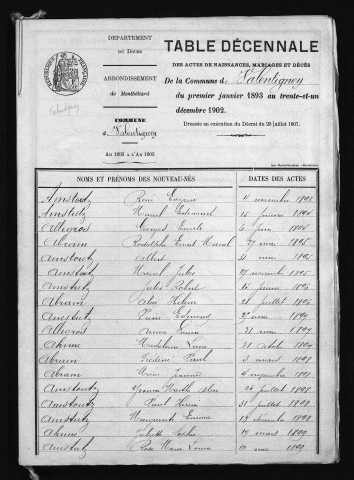 DÉPARTEMENT
DU DOUBS
ARRONDISSEMENT
DE Montbéliard
COMMUNE
de Valentigney
AN 1893 A L'AN 1902
Valentigney
TABLE DÉCENNALE
DES ACTES DE NAISSANCES, MARIAGES ET DÉCÈS
De la Commune de Valentigney
du premier janvier 1893 au trente-et-un
décembre 1902.
Dressée en exécution du Décret du 20 juillet 1807.
NOMS ET PRÉNOMS DES NOUVEAU-NÉS DATES DES ACTES
Amstoutz René Eugène 4 novembre
Amstutz Marcel janvier
Allivros Georges Emile 6 juin
Abram Rodolphe Ernest Marcel 27 mai 1895
Amstoutz Albert 31 mai 1895
Amstoutz Marcel Jules 27 novembre 1895
Amstutz Jules Robert 15 janvier 1896
Abram Alice Hélène 21 juillet 1896
Amstutz Pierre Edmond 27 mars 1897
Allivros Emma 28 mai 1897
Ahme Madeleine Laure 28 octobre 1897
Abram Frédéric Paul 3 mars 1898
Abram Marie Jeanne 4 1898
Amstoutz Yvonne Marthe 24 juillet 1898
Amstoutz Paul Henri 31 juillet 1898
Amstutz Marguerite Emma 18 décembre 1898
Ahme Juliette Sophie 17 mars 1899
Amstutz Rose Marie Louise 10 mai 1899